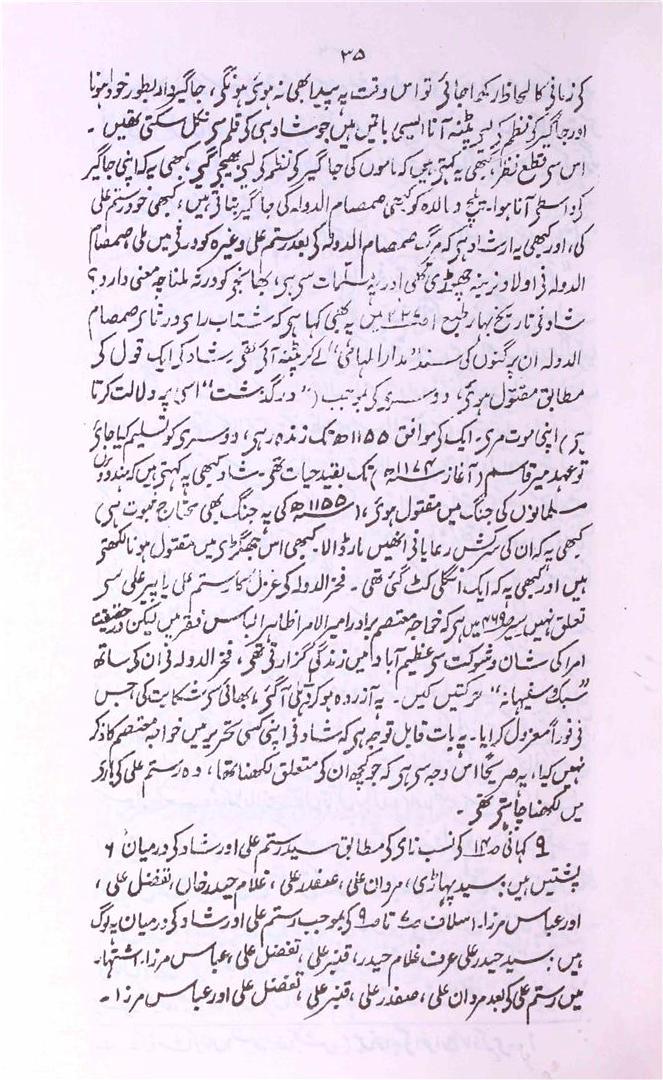 ۳۵
کے زمانے کا لحاظ رکھا جائے تو اس وقت یہ پیدا بھی نہ ہوئی ہونگی، جاگیردار بطور خود ہونا
اور جاگیر کے نظم کے لیے پٹنہ آنا ایسی باتیں ہیں جو شاد ہی کے قلم سے نکل سکتی تھیں۔
اس سے قطع نظر، کبھی یہ کہتے ہیں کہ ماموں کی جاگیر کے نظم کے لیے بھیجے گئے، کبھی یہ کہ اپنی جاگیر
کے واسطے آنا ہوا۔ بیچ و بالدہ کو کبھی صمصام الدولہ کی جاگیر بتاتے ہیں، کبھی خود رستم علی
کی، اور کبھی یہ ارشاد ہے کہ مرگ صمصام الدولہ کے بعد رستم علی وغیرہ کو ورثے میں ملی صمصام
الدولہ نے اولاد نرینہ چھوڑی تھی اور یہ مسلمات سے ہے، بھانجے کو ورثہ ملنا چہ معنی دارد؟
شاد نے تاریخ بہار طبع ۱ ص۲۲۷ میں یہ بھی کہا ہے کہ شتاب رای ورثای صمصام
الدولہ ان پرگنوں کی سند "مدار المہامی" لے کر پٹنہ آئے تھے رشاد کے ایک قول کے
مطابق مقتول ہوئے، دوسرے کے بموجب ("درگذشت" اسی پر دلالت کرتا
ہے) اپنی موت مرے۔ ایک کے موافق ۱۱۵۵ھ تک زندہ رہے، دوسرے کو تسلیم کیا جائے
تو عہد میر قاسم (آغاز سنہ ۱۱۷۴ھ) تک بقید حیات تھے۔ شاد کبھی یہ کہتے ہیں کہ ہندووں
مسلمانوں کی جنگ میں مقتول ہوئے، (سنہ ۱۱۵۵ھ کی یہ جنگ بھی محتاج ثبوت ہے)
کبھی یہ کہ ان کی سرکش رعایا نے انھیں مار ڈالا۔ کبھی اس جھگڑے میں مقتول ہونا لکھتے
ہیں اور کبھی یہ کہ ایک انگلی کٹ گئی تھی۔ فخر الدولہ کے عزل کا رستم علی یا پیر علی سے
تعلق نہیں سیر ص۴۶۹ میں ہے کہ خواجہ معتصم برادر امیر الامرا ظاہرا لباس فقر میں لیکن در حقیقت
امرا کی شان و شوکت سے عظیم آباد میں زندگی گزارتے تھے، فخر الدولہ نے ان کے ساتھ
"سبک و سفیہانہ" حرکتیں کیں۔ یہ آزردہ ہو کر دہلی آ گئے، بھائی سے شکایت کی جس
نے فوراً معزول کرایا۔ یہ بات قابل توجہ ہے کہ شاد نے اپنی کسی تحریر میں خواجہ معتصم کا ذکر
نہیں کیا، یہ صریحاً اس وجہ سے ہے کہ جو کچھ ان کے متعلق لکھنا تھا، وہ رستم علی کے بارے
میں لکھنا چاہتے تھے۔
۹ کہانی ص۱۴ کے نسب نامے کے مطابق سید رستم علی اور شاد کے درمیان ۶
پشتیں ہیں: سید پہاڑی، مردان علی، صفدر علی، غلام حیدر خاں، تفضل علی،
اور عباس مرزا۔ اسلاف ص۷ تا ص۹ کے بموجب رستم علی اور شاد کے درمیان یہ لوگ
ہیں: سید حیدر علی عرف غلام حیدر، قنبر علی، تفضل علی، عباس مرزا۔ اشتہار
میں رستم علی کے بعد مردان علی، صفدر علی، قنبر علی، تفضل علی اور عباس مرزا۔